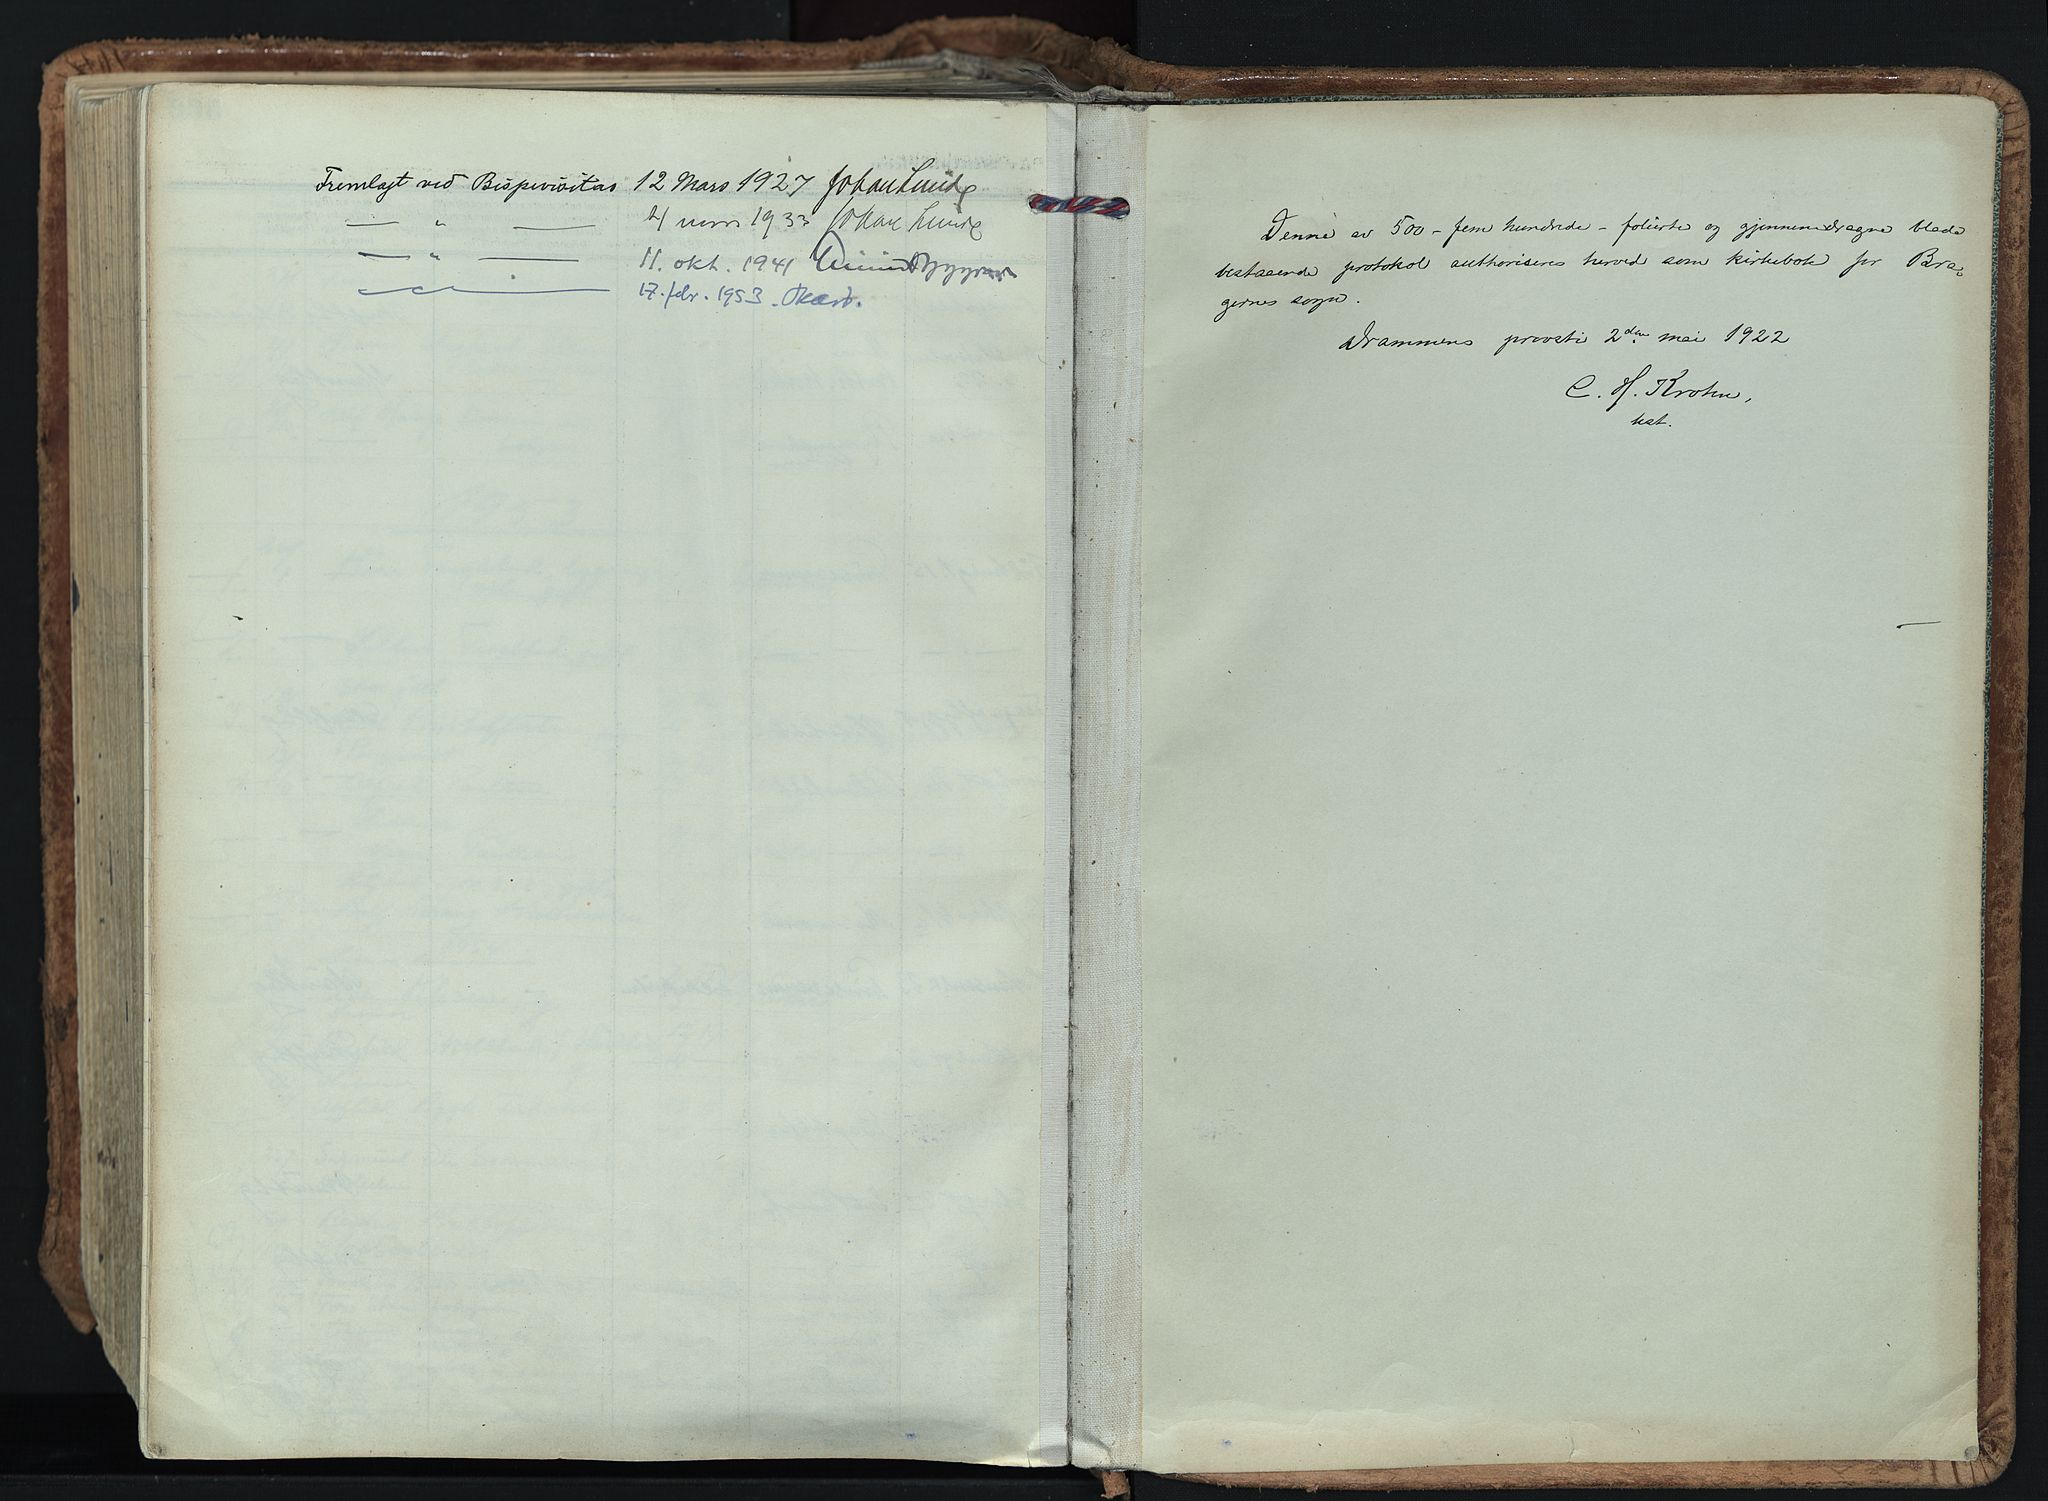 Fremlagt ved Bispevisitas 12 Mars 1927 Johan Lunde
— " — 4 mars 1933 Johan Lunde
— " — 11. okt. 1941
— " — 17. febr. 1953.
Denne av 500 - fem hundrede - folierte og gjennemdragne blade
bestaaende protokol authoriseres herved som kirkebok for Bra-
gernes sogn.
Drammens provsti 2den mai 1922
C. H. Krohn,
kst.